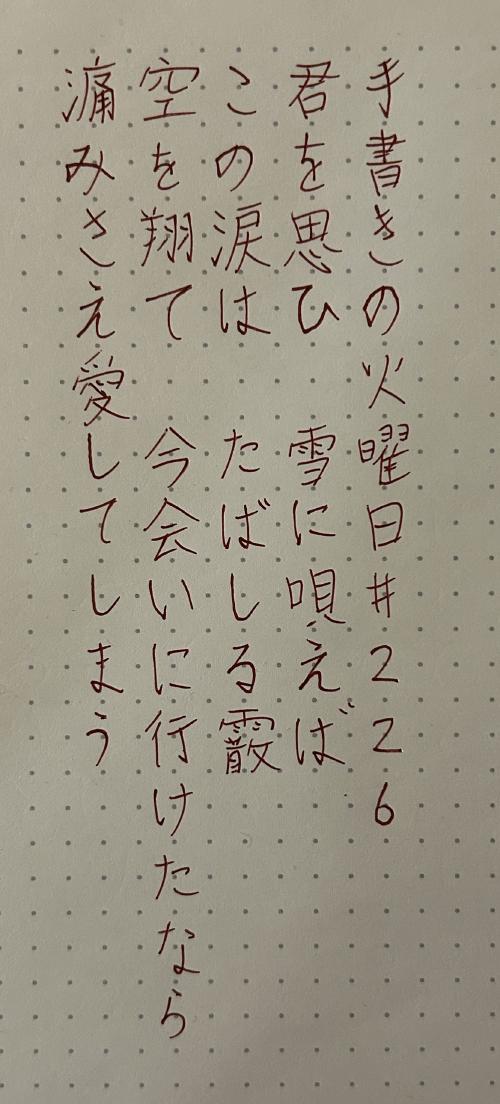 手書きの火曜日#226
君を思ひ 雪に唄えば
この涙は たばしる霰
空を翔て 今会いに行けたなら
痛みさえ愛してしまう